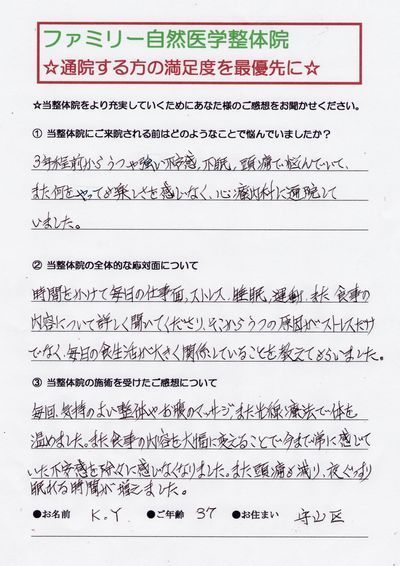 ファミリー自然医学整体院
☆通院する方の満足度を最優先に☆
☆当整体院をより充実していくためにあなた様のご感想をお聞かせください。
① 当整体院にご来院される前はどのようなことで悩んでいましたか？
3年程前からうつや強い不安感、不眠、頭痛で悩んでいて、
また何をやっても楽しさを感じなく、心療内科に通院して
いました。
② 当整体院の全体的な応対面について
時間をかけて毎日の仕事面、ストレス、睡眠、運動、また食事の
内容について詳しく聞いてくださり、そこからうつの原因がストレスだけ
でなく、毎日の食生活が大きく関係していることを教えてもらいました。
③ 当整体院の施術を受けたご感想について
毎回、気持のよい整体やお腹のマッサージまた光線療法で体を
温めました。また食事の内容を大幅に変えることで今まで常に感じて
いた不安感を徐々に感じなくなりました。また頭痛も減り、夜ぐっすり
眠れる時間が増えました。
●お名前 K.Y. ●ご年齢 37 ●お住まい 守山区